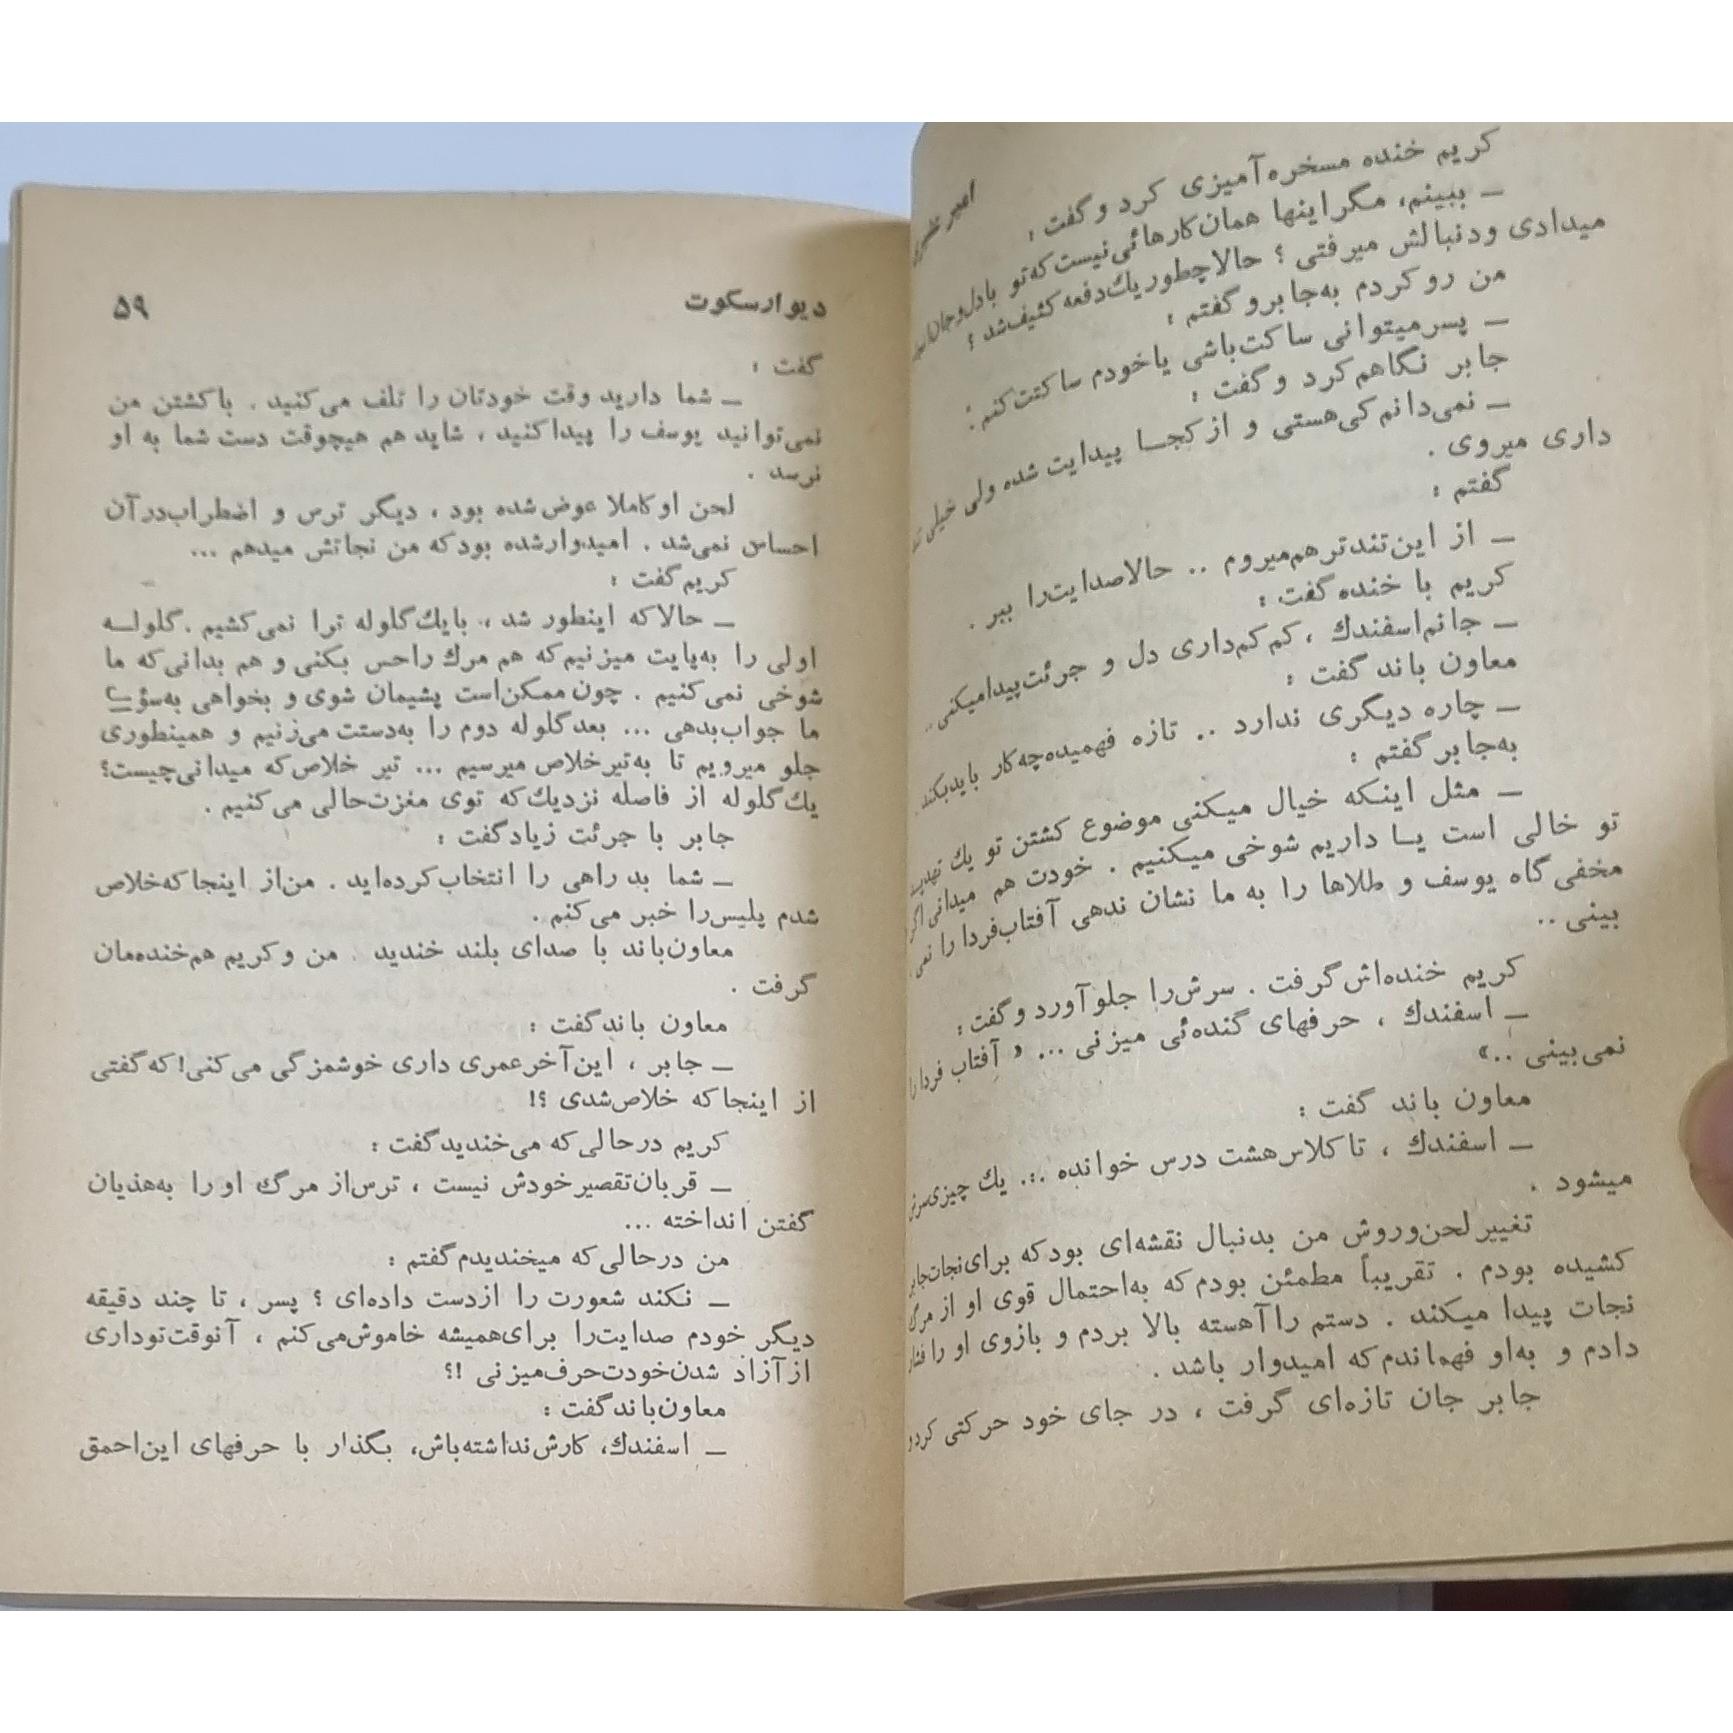 امیر
کریم خنده مسخره‌آمیزی کرد و گفت :
ــ ببینم، مگر اینها همان کارهائی نیست که تو با دل و جان
میدادی و دنبالش میرفتی ؟ حالا چطور یك دفعه کثیف شد ؟
من رو کردم به جابر و گفتم :
ــ پسر میتوانی ساکت باشی یا خودم ساکتت کنم ؟
جابر نگاهم کرد و گفت :
ــ نمی‌دانم کی هستی و از کجـا پیدایت شده ولی خیلی
داری میروی .
گفتم :
ــ از این تندتر هم میروم .. حالا صدایت را ببر .
کریم با خنده گفت :
ــ جانم اسفندك ، کم کم داری دل و جرئت پیدا میکنی ..
معاون باند گفت :
ــ چاره دیگری ندارد .. تازه فهمیده چه کار باید بکند .
به جابر گفتم :
ــ مثل اینکه خیال میکنی موضوع کشتن تو یك تهدید
تو خالی است یـا داریم شوخی میکنیم . خودت هم میدانی اگر
مخفی گاه یوسف و طلاها را به ما نشان ندهی آفتاب فردا را نمی
بینی ..
کریم خنده‌اش گرفت . سرش را جلو آورد و گفت :
ــ اسفندك ، حرفهای گنده‌ئی میزنی ... « آفتاب فردا را
نمی بینی ..»
معاون باند گفت :
ــ اسفندك ، تا کلاس هشت درس خوانده ... یك چیزی سرش
میشود .
تغییر لحن و روش من بدنبال نقشه‌ای بود که برای نجات جابر
کشیده بودم . تقریباً مطمئن بودم که به احتمال قوی او از مرگ
نجات پیدا میکند . دستم را آهسته بالا بردم و بازوی او را فشار
دادم و به او فهماندم که امیدوار باشد .
جابر جان تازه‌ای گرفت ، در جای خود حرکتی کرد و
دیوار سکوت ۵۹
گفت :
ــ شما دارید وقت خودتان را تلف می‌کنید . با کشتن من
نمی‌توانید یوسف را پیدا کنید ، شاید هم هیچوقت دست شما به او
نرسد .
لحن او کاملا عوض شده بود ، دیگر ترس و اضطراب در آن
احساس نمی‌شد . امیدوار شده بود که من نجاتش میدهم ...
کریم گفت :
ــ حالا که اینطور شد ، با یك گلوله ترا نمی کشیم . گلولـه
اولی را به پایت میزنیم که هم مرك را حس بکنی و هم بدانی که ما
شوخی نمی کنیم . چون ممکن است پشیمان شوی و بخواهی به
ما جواب بدهی ... بعد گلوله دوم را به دستت می‌زنیم و همینطوری
جلو میرویم تا به تیر خلاص میرسیم ... تیر خلاص که میدانی چیست؟
یك گلوله از فاصله نزدیك که توی مغزت خالی می کنیم .
جابر با جرئت زیاد گفت :
ــ شما بد راهی را انتخاب کرده‌اید . من از اینجا که خلاص
شدم پلیس را خبر می کنم .
معاون باند با صدای بلند خندید . من و کریم هم خنده‌مان
گرفت .
معاون باند گفت :
ــ جابر ، این آخر عمری داری خوشمزگی می کنی! که گفتی
از اینجا که خلاص شدی ؟!
کریم در حالی که می‌خندید گفت :
ــ قربان تقصیر خودش نیست ، ترس از مرگ او را به هذیان
گفتن انداخته ...
من در حالی که میخندیدم گفتم :
ــ نکند شعورت را از دست داده‌ای ؟ پسر ، تا چند دقیقه
دیگر خودم صدایت را برای همیشه خاموش می کنم ، آنوقت تو داری
از آزاد شدن خودت حرف میزنی ؟!
معاون باند گفت :
ــ اسفندك، کارش نداشته باش، بگذار با حرفهای این احمق